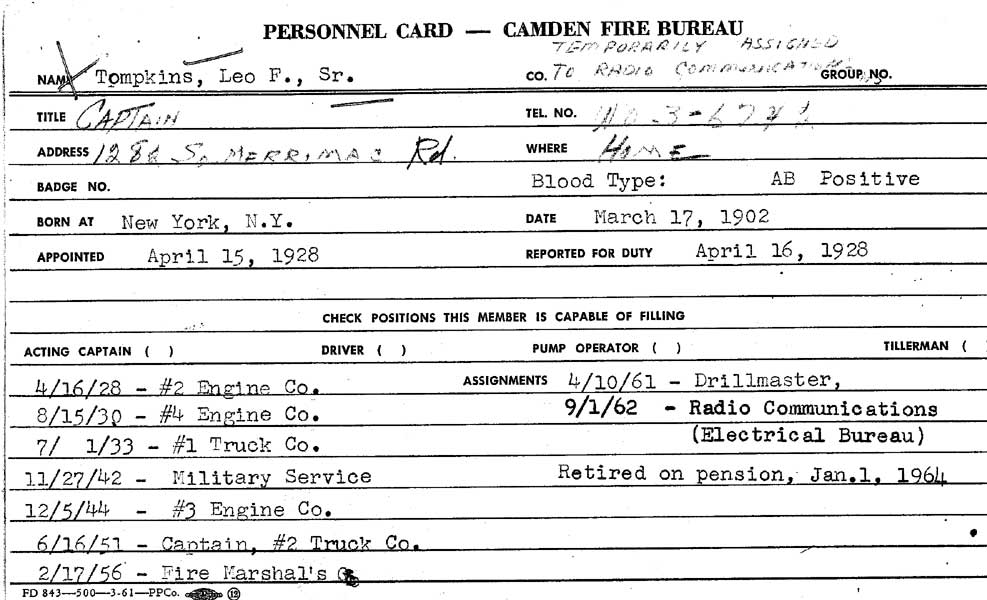 PERSONNEL CARD — CAMDEN FIRE BUREAU
TEMPORARILY ASSIGNED
NAME Tompkins, Leo F., Sr. CO. TO RADIO COMMUNICATIONS GROUP NO.
TITLE CAPTAIN TEL. NO.
ADDRESS So MERRIMAC Rd. WHERE HOME
BADGE NO. Blood Type: AB Positive
BORN AT New York, N.Y. DATE March 17, 1902
APPOINTED April 15, 1928 REPORTED FOR DUTY April 16, 1928
CHECK POSITIONS THIS MEMBER IS CAPABLE OF FILLING
ACTING CAPTAIN ( ) DRIVER ( ) PUMP OPERATOR ( ) TILLERMAN (
4/16/28 - #2 Engine Co. ASSIGNMENTS 4/10/61 - Drillmaster,
8/15/30 - #4 Engine Co. 9/1/62 - Radio Communications
7/ 1/33 - #1 Truck Co. (Electrical Bureau)
11/27/42 - Military Service Retired on pension, Jan.1, 1964
12/5/44 - #3 Engine Co.
6/16/51 - Captain, #2 Truck Co.
2/17/56 - Fire Marshal's
FD 843—500—3-61—PPCo.